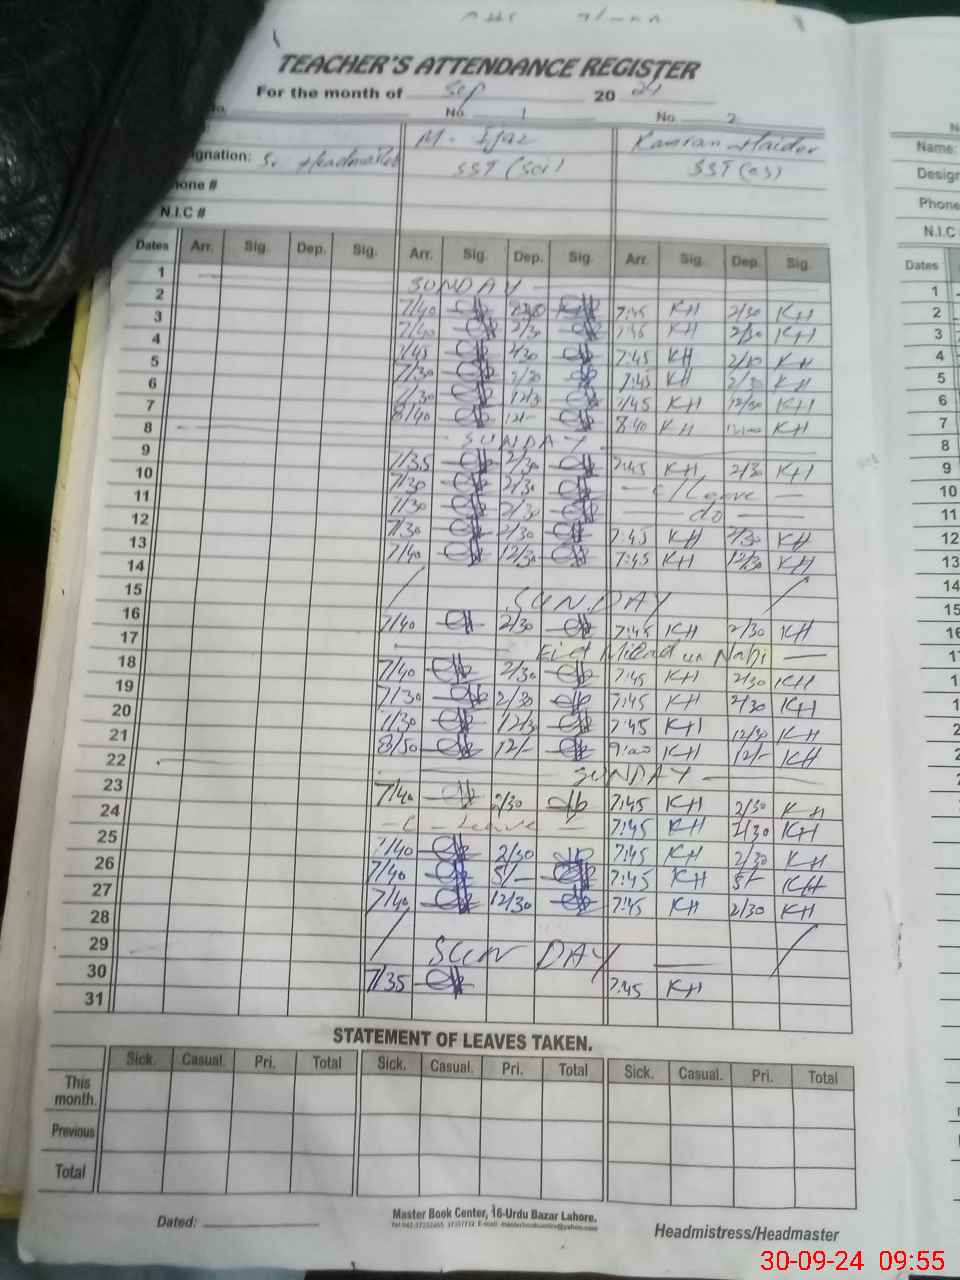 TEACHER'S ATTENDANCE REGISTER
For the month of Sep 20 24
No. No. 1 No. 2
M. Ijaz Kamran Haider
Designation: Sr. Headmaster SST (Sci) SST (CS)
Phone #
N.I.C #
Dates Arr. Sig. Dep. Sig. Arr. Sig. Dep. Sig. Arr. Sig. Dep. Sig.
1 SUNDAY
2 7/40 7:45 KH 2/30 KH
3 7/40 2/30 KH 2/30 KH
4 7/45 2/30 7:45 KH 2/30 KH
5 7/30 2/30 7:45 KH 2/30 KH
6 7/30 12/30 7:45 KH 12/30 KH
7 8/40 12/- 8:40 KH KH
8 SUNDAY
9 7/35 2/30 7:45 KH 2/30 KH
10 7/30 2/30 C/Leave
11 7/30 2/30 do
12 7/30 2/30 7:45 KH 2/30 KH
13 7/40 12/30 7:45 KH 12/30 KH
14
15 SUNDAY
16 7/40 2/30 7:45 KH 2/30 KH
17 Eid Milad un Nabi
18 7/40 2/30 7:45 KH 2/30 KH
19 7/30 2/30 7:45 KH 2/30 KH
20 7/30 12/30 7:45 KH 12/30 KH
21 8/50 12/- 9:00 KH 12/- KH
22 SUNDAY
23 7/40 2/30 7:45 KH 2/30 KH
24 C - Leave 7:45 KH 2/30 KH
25 7/40 2/30 7:45 KH 2/30 KH
26 7/40 5/- 7:45 KH 5/- KH
27 7/40 12/30 7:45 KH 2/30 KH
28
29 SUNDAY
30 7/35 7:45 KH
31
STATEMENT OF LEAVES TAKEN.
Sick. Casual. Pri. Total Sick. Casual. Pri. Total Sick. Casual. Pri. Total
This month.
Previous
Total
Dated:
Master Book Center, 16-Urdu Bazar Lahore.
Headmistress/Headmaster
Name:
Phone
N.I.C
Dates
1
2
3
4
5
6
7
8
9
10
11
12
13
14
15
30-09-24 09:55